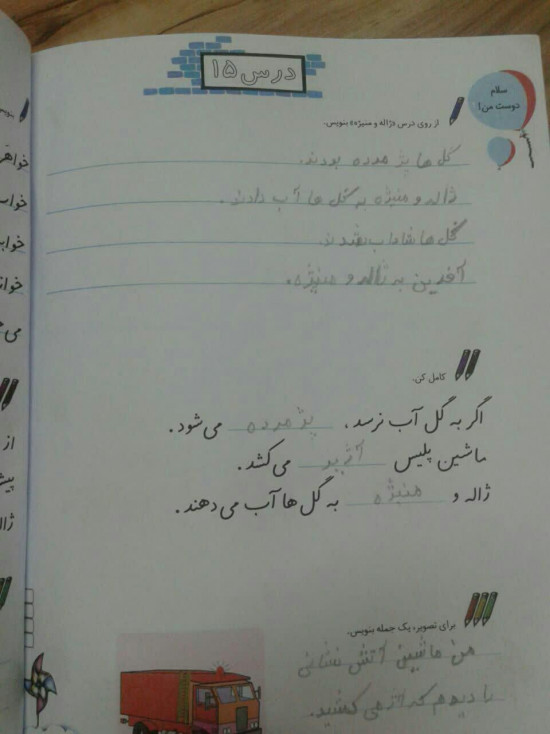 درس ۱۵
سلام
دوست من!
از روی درس «ژاله و منیژه» بنویس.
گل ها پژمرده بودند.
ژاله و منیژه به گل ها آب دادند.
گل ها شاداب شدند.
آفرین به ژاله و منیژه.
کامل کن.
اگر به گل آب نرسد، پژمرده می‌شود.
ماشین پلیس آژیر می‌کشد.
ژاله و منیژه به گل‌ها آب می‌دهند.
برای تصویر، یک جمله بنویس.
من ماشین آتش نشانی
را دیدم که آژ می کشید.
خواهر
می
از
ژاله